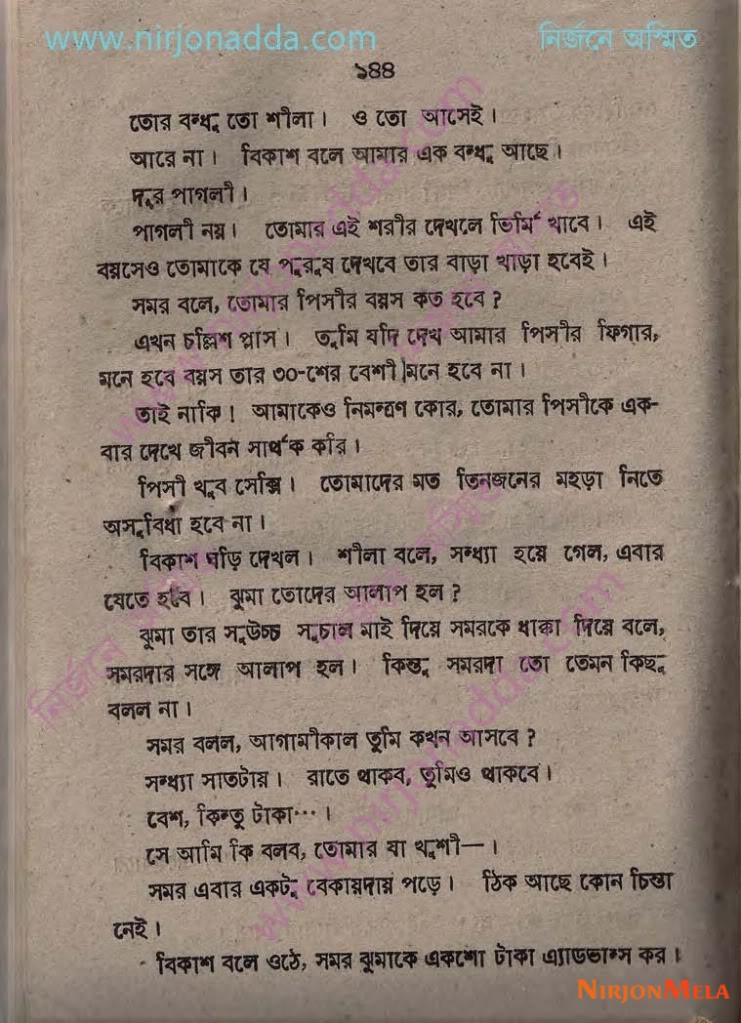 www.nirjonadda.com নির্জনে অস্মিত
১৪৪
তোর বন্ধু তো শীলা। ও তো আসেই।
আরে না। বিকাশ বলে আমার এক বন্ধু আছে।
দূর পাগলী।
পাগলী নয়। তোমার এই শরীর দেখলে ভির্মি খাবে। এই
বয়সেও তোমাকে যে পুরুষ দেখবে তার বাড়া খাড়া হবেই।
সমর বলে, তোমার পিসীর বয়স কত হবে?
এখন চল্লিশ প্লাস। তুমি যদি দেখ আমার পিসীর ফিগার,
মনে হবে বয়স তার ৩০-শের বেশী মনে হবে না।
তাই নাকি! আমাকেও নিমন্ত্রণ কোর, তোমার পিসীকে এক-
বার দেখে জীবন সার্থক করি।
পিসী খুব সেক্সি। তোমাদের মত তিনজনের মহড়া নিতে
অসুবিধা হবে না।
বিকাশ ঘড়ি দেখল। শীলা বলে, সন্ধ্যা হয়ে গেল, এবার
যেতে হবে। ঝুমা তোদের আলাপ হল?
ঝুমা তার সুউচ্চ সুচাল মাই দিয়ে সমরকে ধাক্কা দিয়ে বলে,
সমরদার সঙ্গে আলাপ হল। কিন্তু সমরদা তো তেমন কিছু
বলল না।
সমর বলল, আগামীকাল তুমি কখন আসবে?
সন্ধ্যা সাতটায়। রাতে থাকব, তুমিও থাকবে।
বেশ, কিন্তু টাকা···।
সে আমি কি বলব, তোমার যা খুশী—।
সমর এবার একটু বেকায়দায় পড়ে। ঠিক আছে কোন চিন্তা
নেই।
বিকাশ বলে ওঠে, সমর ঝুমাকে একশো টাকা এ্যাডভান্স কর।
NIRJONMELA